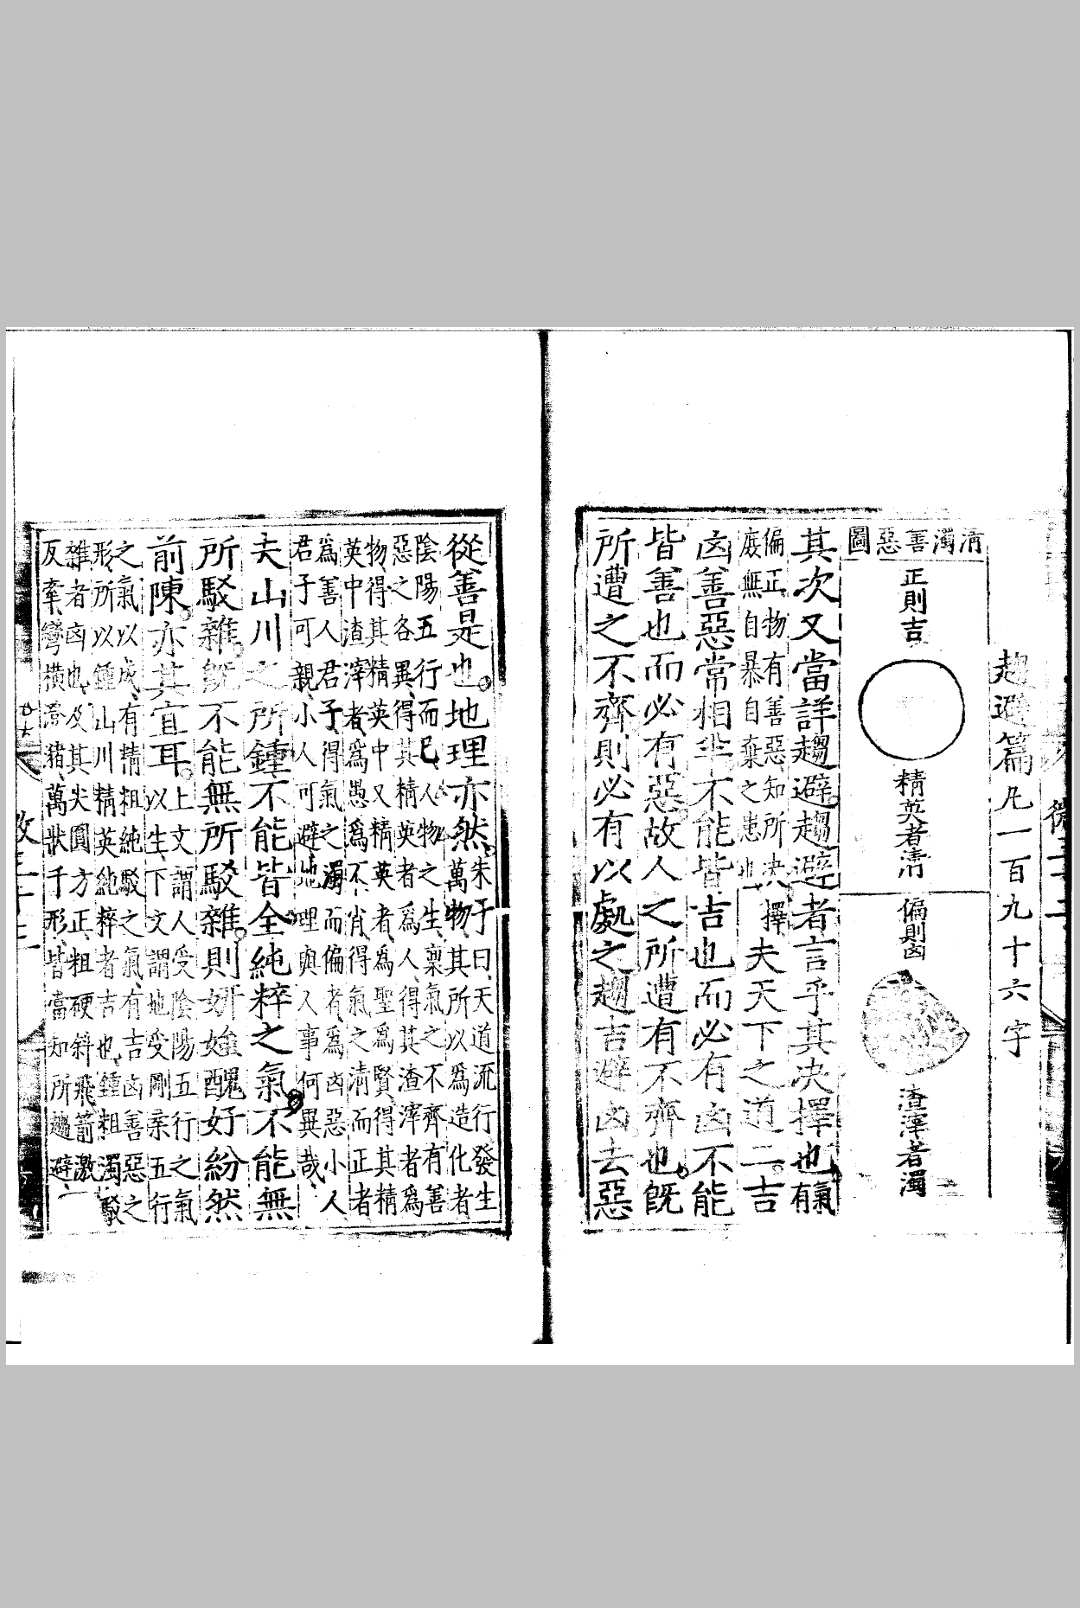 趍避篇凡一百九十六字
清濁善惡圖
正則吉
精英者清
偏則凶
渣滓者濁
其次又當詳趨避趨避者言乎其决擇也氣有
偏正物有善惡知所决擇
庶無自暴自棄之患也
夫天下之道二吉
凶善惡常相半不能皆吉也而必有凶不能
皆善也而必有惡故人之所遭有不齊也既
所遭之不齊則必有以處之趨吉避凶去惡
從善是也地理亦然
朱子曰天道流行發生
萬物其所以爲造化者
陰陽五行而已人物之生稟氣之不齊有善
惡之各異得其精英者爲人得其渣滓者爲
物得其精英中又精英者爲聖爲賢得其精
英中渣滓者爲愚爲不肖得氣之清而正者
爲善人君子得氣之濁而偏者爲凶惡小人
君子可親小人可避地理與人事何異哉
夫山川之所鍾不能皆全純粹之氣不能無
所駁雜旣不能無所駁雜則姸媸醜好紛然
前陳亦其宜耳
上文謂人受陰陽五行之氣
以生下文謂地受剛柔五行
之氣以成有精粗純駁之氣有吉凶善惡之
形所以鍾山川精英純粹者吉也鍾粗濁駁
雜者凶也及其尖圓方正粗硬斜飛箭激
反牽彎橫萬狀千形皆當知所趨避